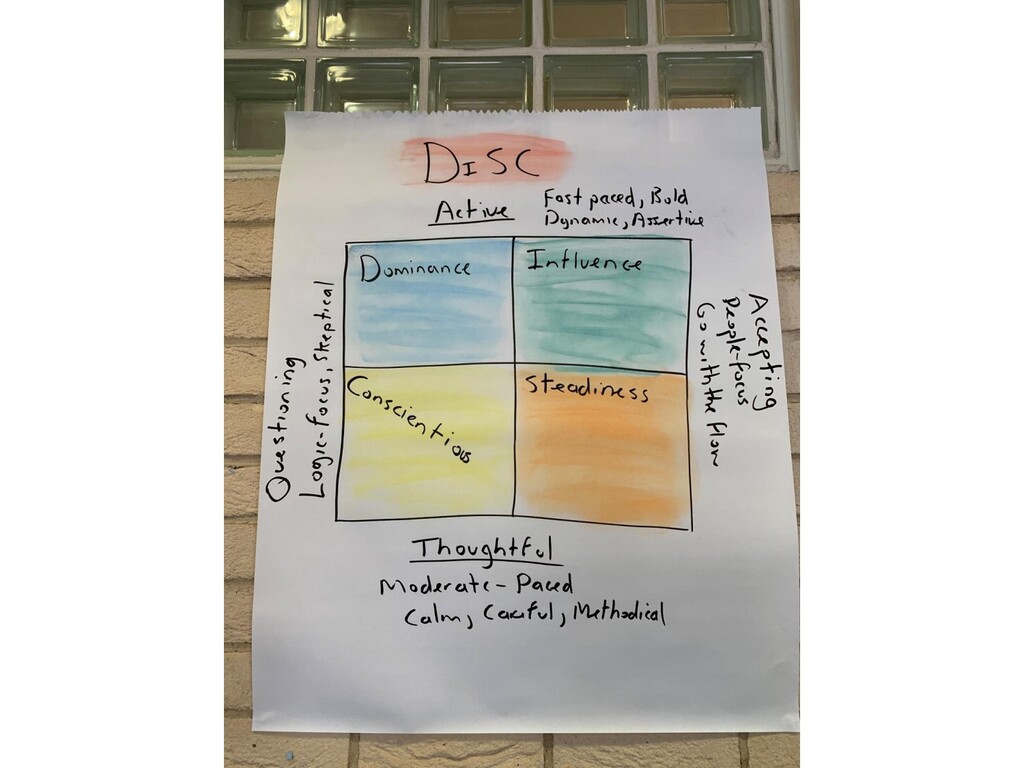 DiSC
Active
Fast paced, Bold
Dynamic, Assertive
Dominance
Influence
Questioning
Logic-focus, Skeptical
Accepting
People-focus
Go with the flow
Conscientious
Steadiness
Thoughtful
Moderate-Paced
Calm, Careful, Methodical